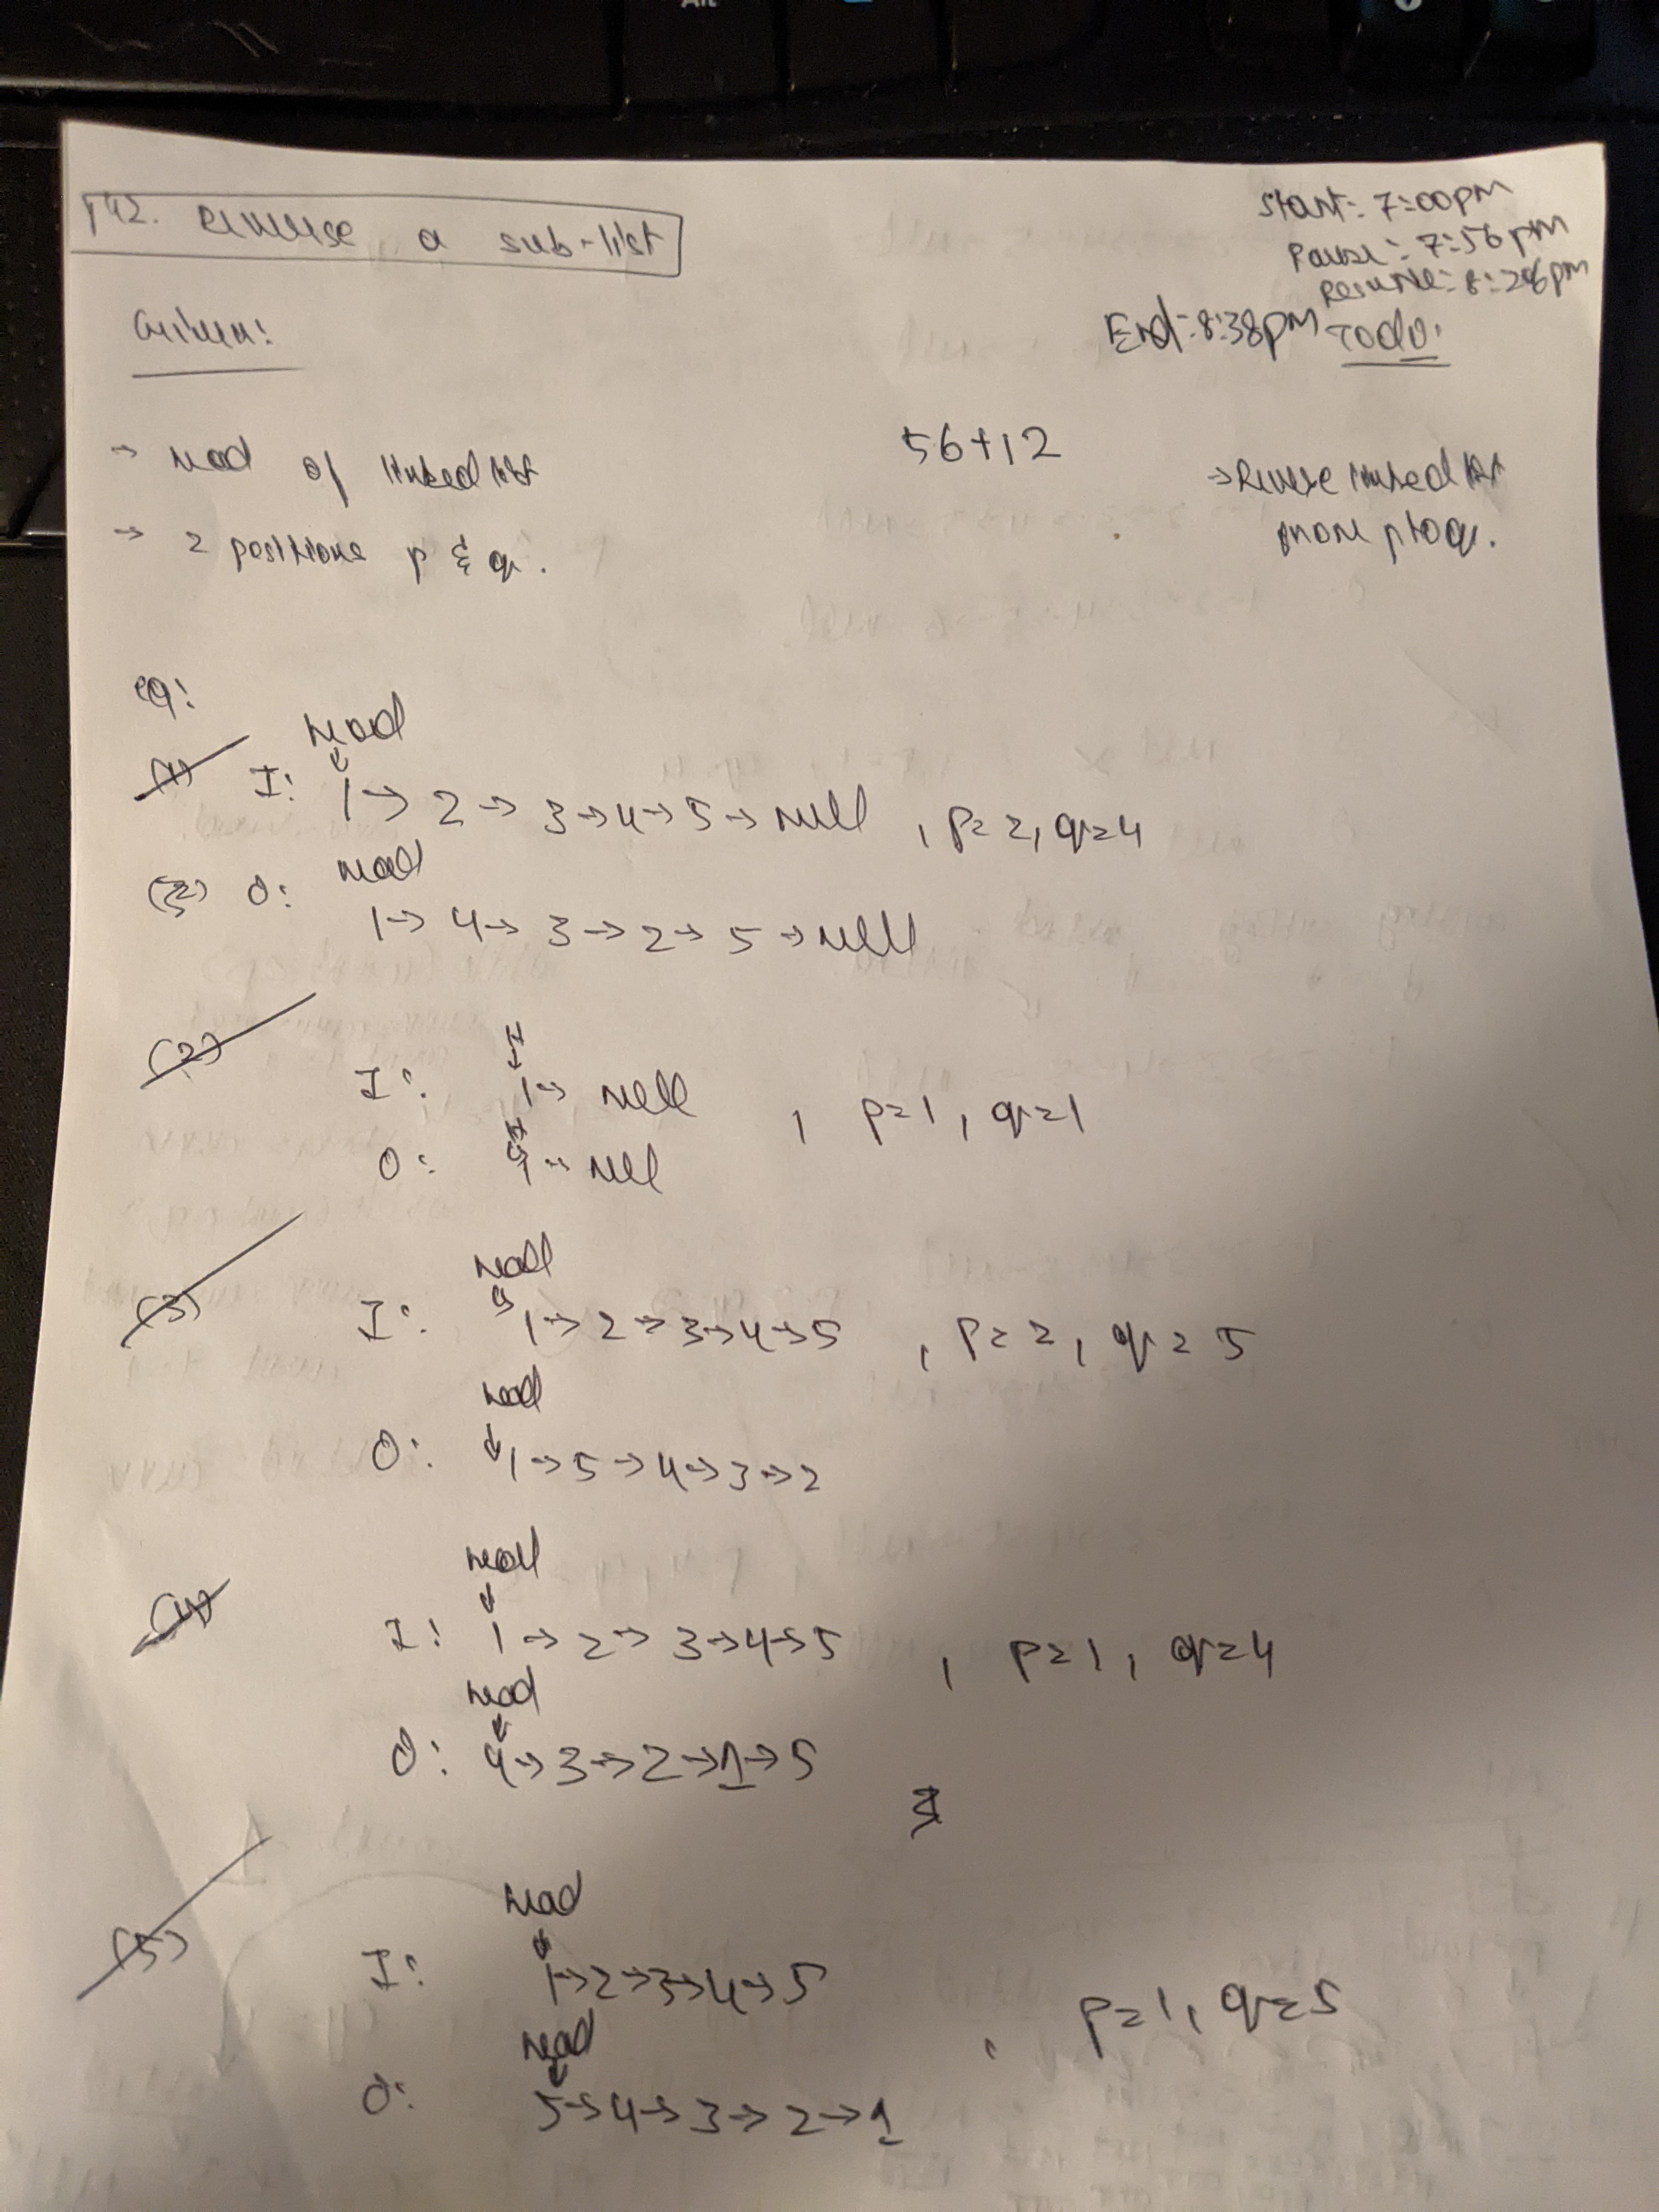 142. Reverse a sub-list
Start: 7:00pm
Pause: 7:56pm
Resume: 8:26pm
End: 8:38pm
Given:
Todo:
→ Head of linked list
→ 2 positions p & q.
56+12
→ Reverse linked list
from p to q.
eg:
(1)
Head
I: 1 → 2 → 3 → 4 → 5 → Null , p=2, q=4
Head
O: 1 → 4 → 3 → 2 → 5 → Null
(2)
H
I: 1 → Null , p=1, q=1
H
O: 1 → Null
(3)
Head
I: 1 → 2 → 3 → 4 → 5 , p=2, q=5
Head
O: 1 → 5 → 4 → 3 → 2
(4)
Head
I: 1 → 2 → 3 → 4 → 5 , p=1, q=4
Head
O: 4 → 3 → 2 → 1 → 5
(5)
Head
I: 1 → 2 → 3 → 4 → 5 , p=1, q=5
Head
O: 5 → 4 → 3 → 2 → 1